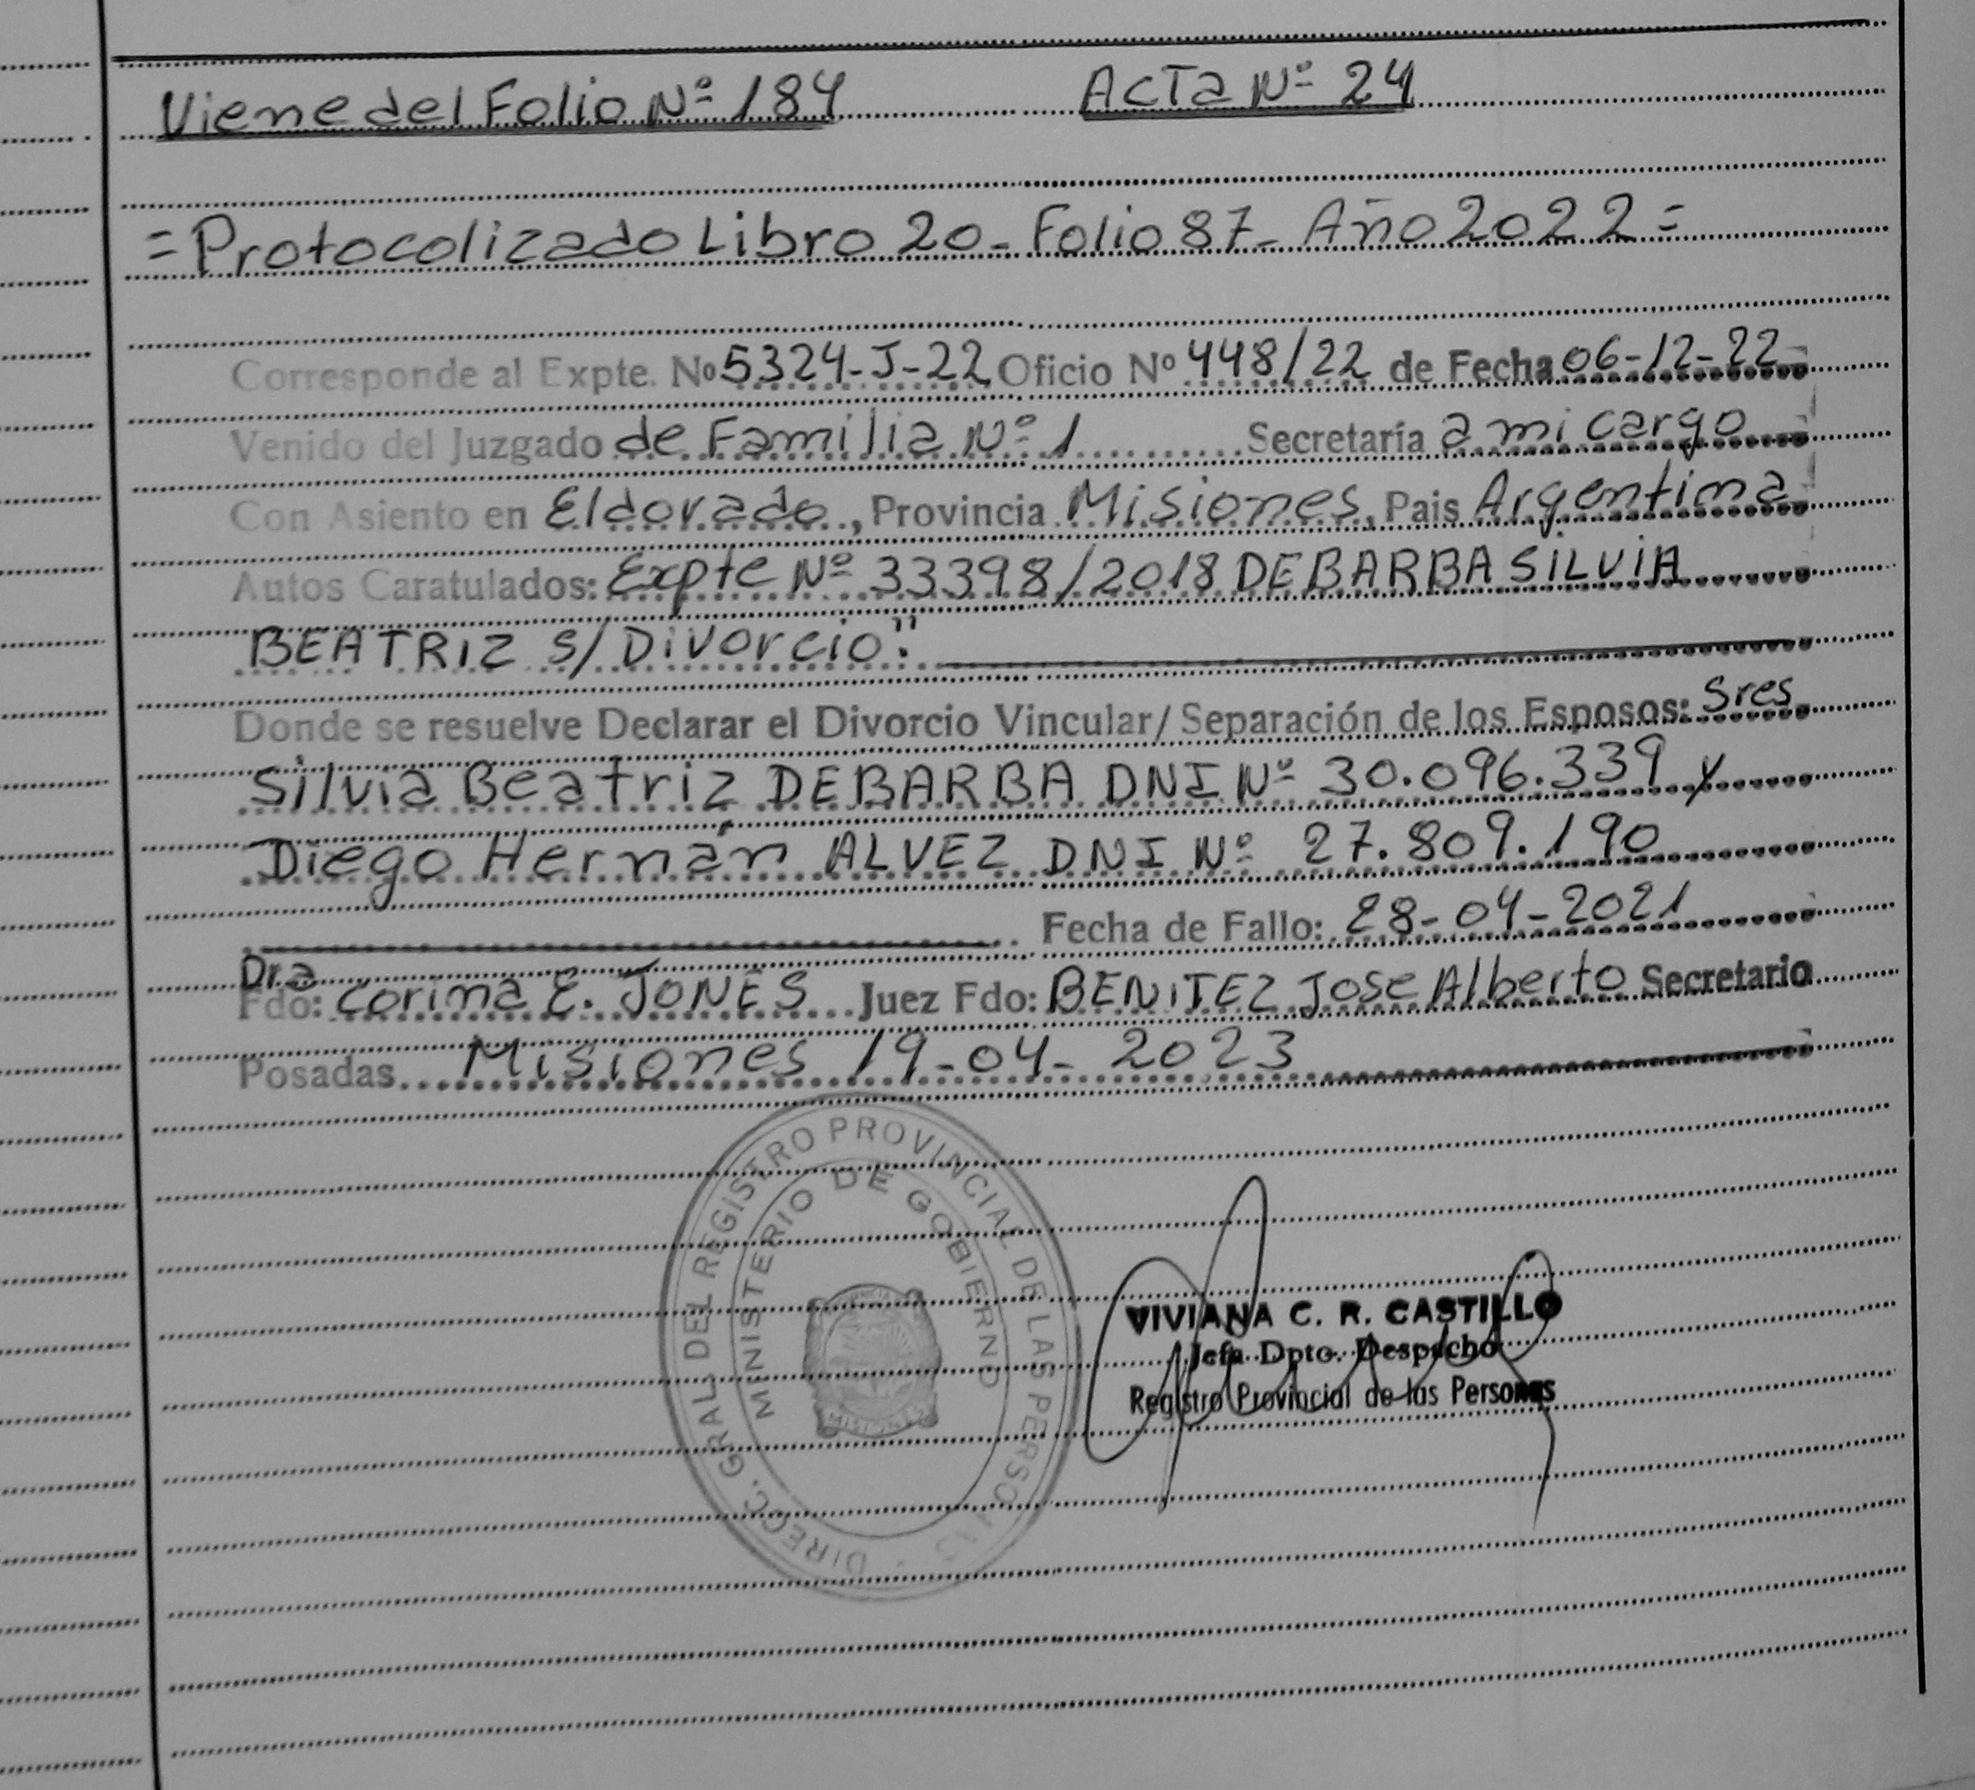 Viene del Folio Nº 184 Acta Nº 24
=Protocolizado Libro 20- Folio 87- Año 2022=
Corresponde al Expte. Nº 5324-J-22 Oficio Nº 448/22 de Fecha 06-12-22
Venido del Juzgado de Familia Nº 1 Secretaría a mi cargo
Con Asiento en Eldorado, Provincia Misiones, Pais Argentina
Autos Caratulados: Expte Nº 33398/2018 DEBARBA SILVIA
BEATRIZ s/Divorcio."
Donde se resuelve Declarar el Divorcio Vincular/ Separación de los Esposos: Sres
Silvia Beatriz DEBARBA DNI Nº 30.096.339 y
Diego Hernán ALVEZ DNI Nº 27.809.190
Fecha de Fallo: 28-04-2021
Dra
Fdo: Corina E. JONES Juez Fdo: BENITEZ Jose Alberto Secretario
Posadas Misiones 19-04-2023
DIRECC. GRAL DEL REGISTRO PROVINCIAL DE LAS PERSONAS
MINISTERIO DE GOBIERNO
MISIONES
VIVIANA C. R. CASTILLO
Jefa Dpto. Despacho
Registro Provincial de las Personas